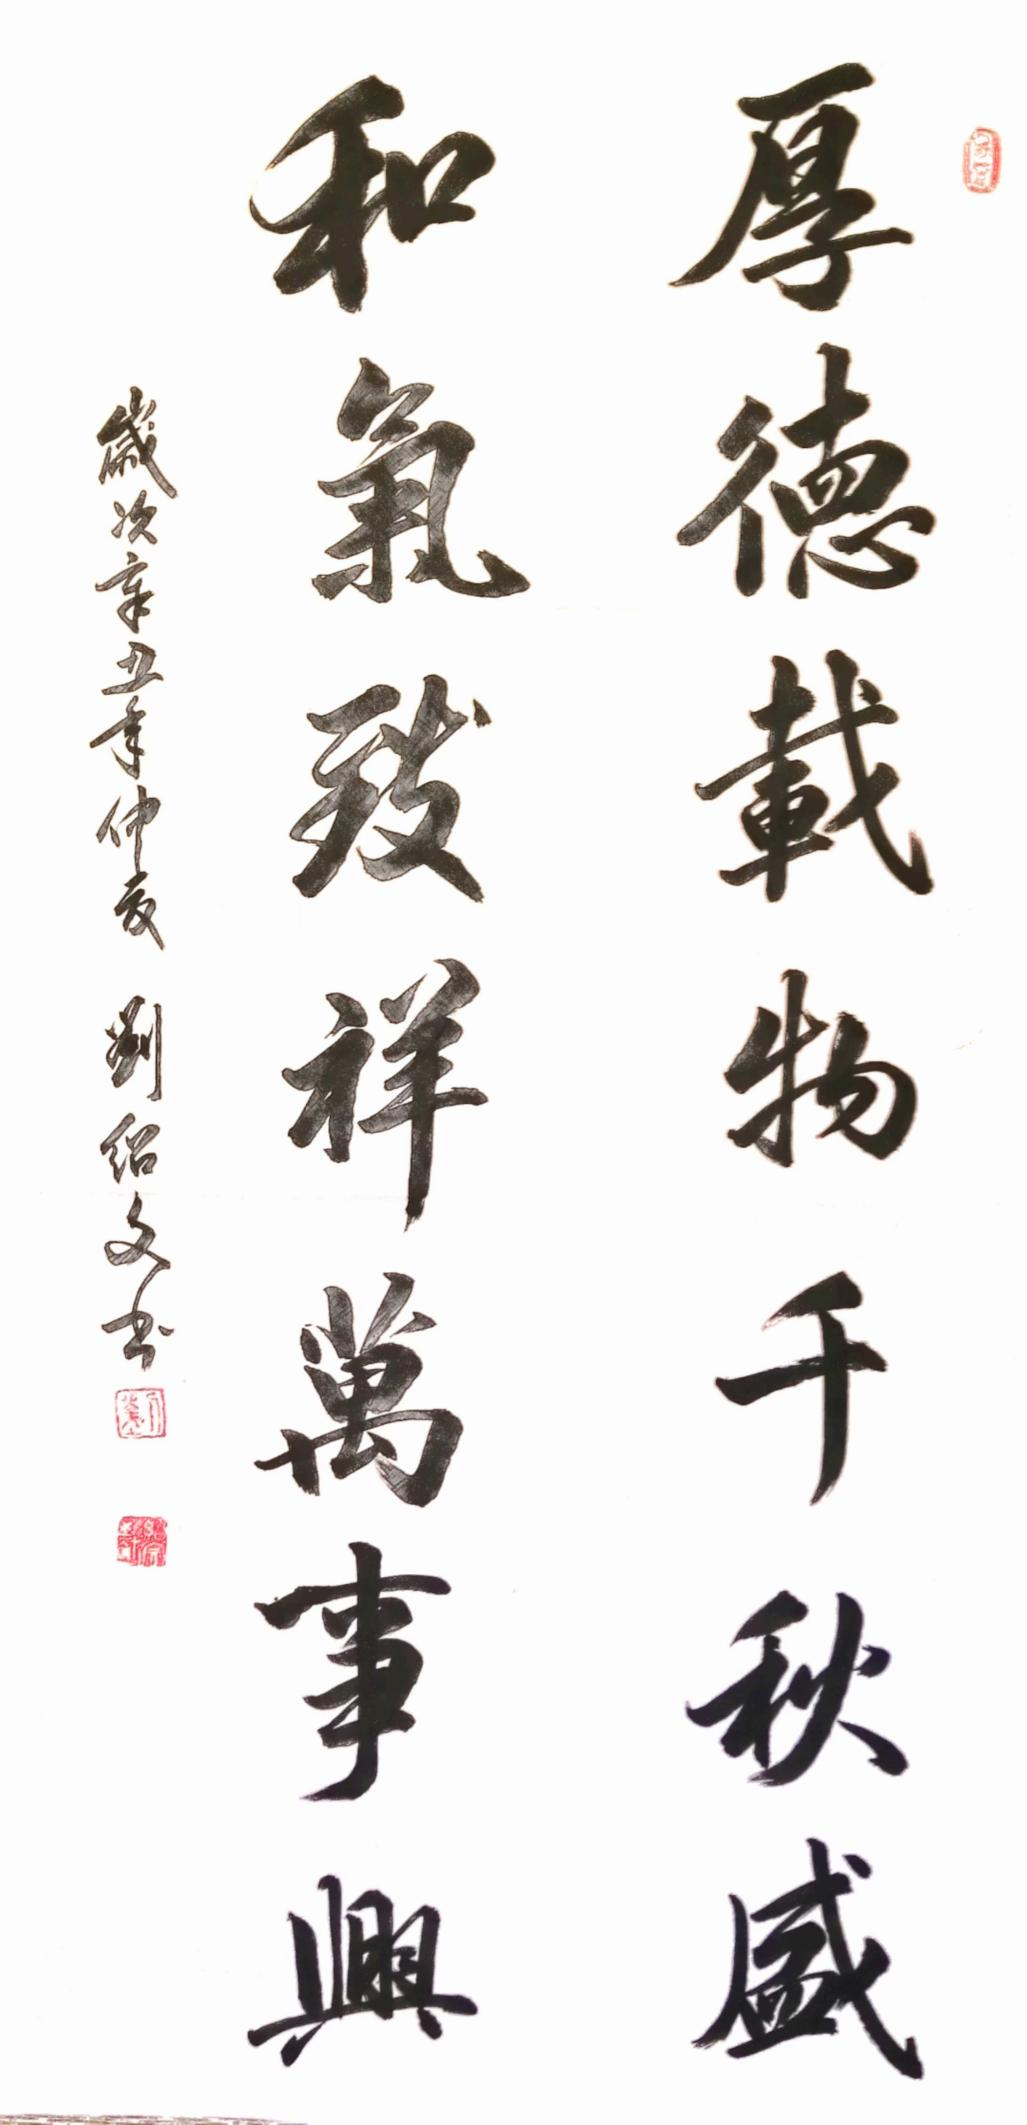 厚德載物千秋盛
和氣致祥萬事興
歲次辛丑年仲夏 劉紹文书